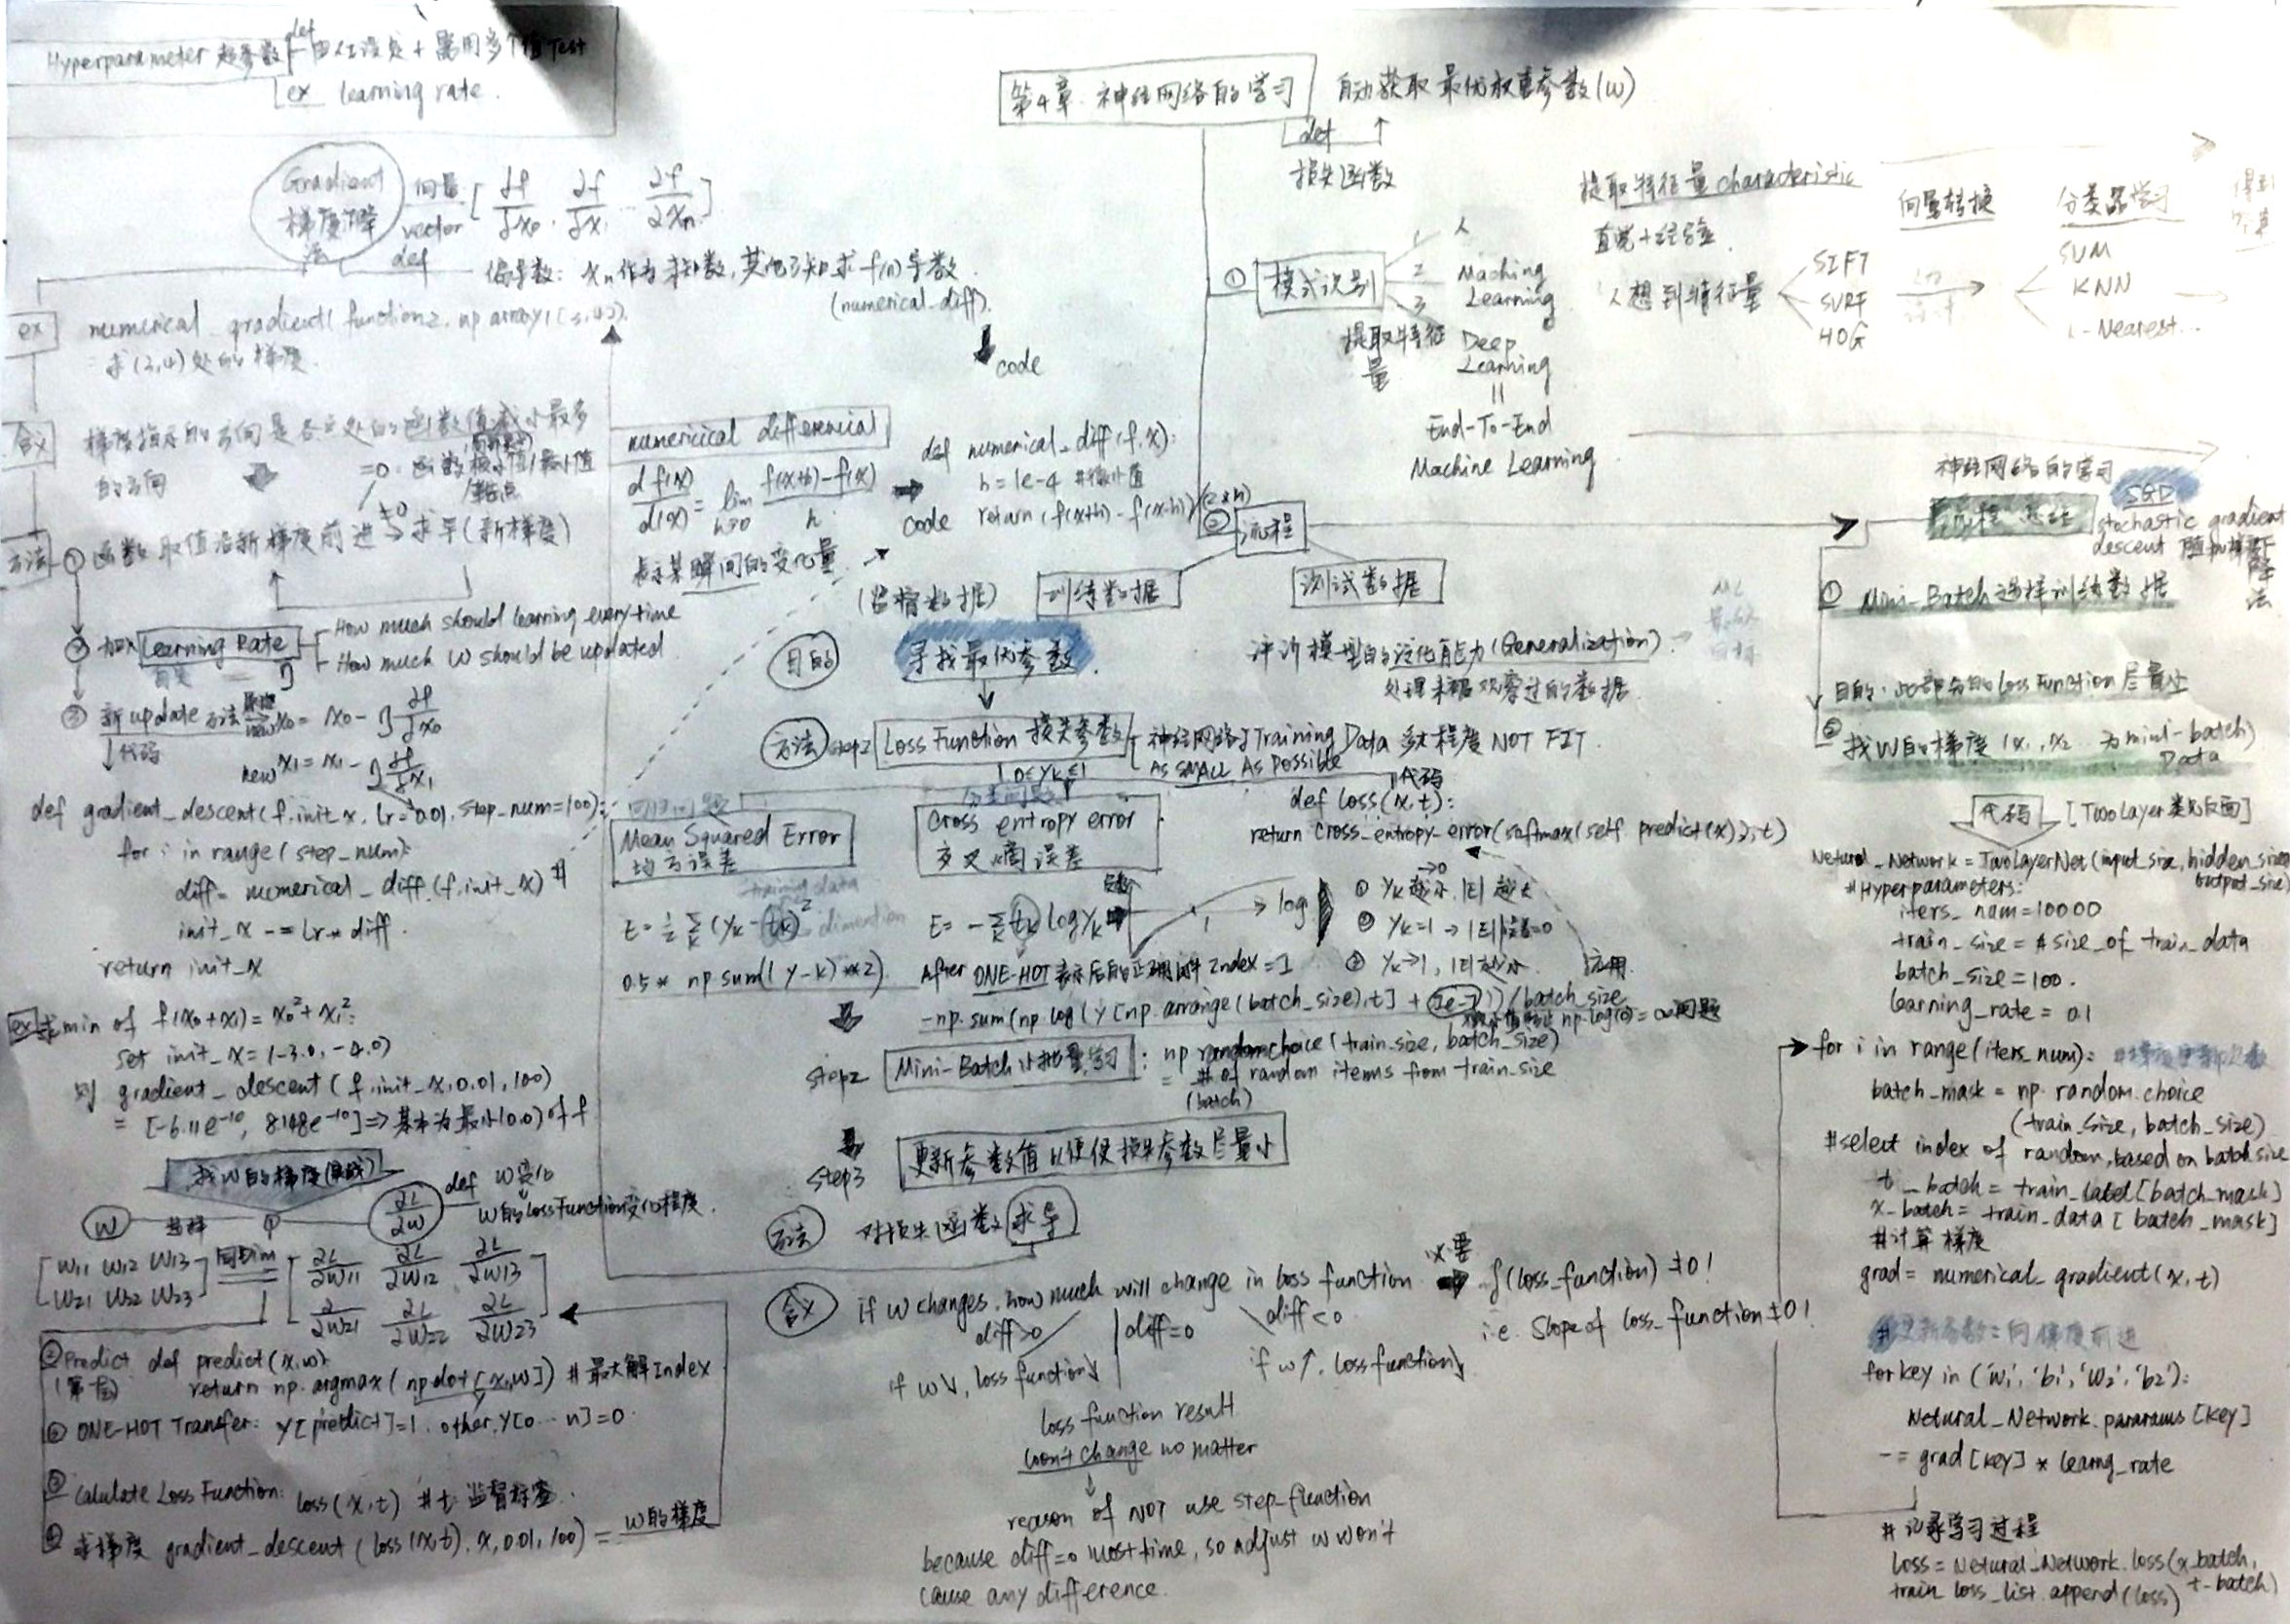 Hyperparameter 超参数 def 由人工设定 + 需用多个值Test
ex learning rate.
Gradient
梯度下降
法
向量
vector
[ ∂f/∂x0 · ∂f/∂x1 … ∂f/∂xn ]
def
偏导数: xn作为未知数, 其他已知求 f(n)导数
(numerical_diff).
code
ex
numerical_gradient(function2, np.array([3,4])).
求(3,4)处的梯度.
含义
梯度指示的方向是各点处的函数值减小最多
的方向
=0. 函数极小值/最小值
/鞍点
≠0
方法
① 函数取值沿新梯度前进 → 求导(新梯度)
② 加入 Learning Rate
η
How much should learning every time
How much W should be updated
③ 新update方法 new x0 = x0 - η ∂f/∂x0
代码
new x1 = x1 - η ∂f/∂x1
def gradient_descent(f, init_x, lr=0.01, step_num=100):
for i in range(step_num):
diff= numerical_diff(f, init_x)
init_x -= lr * diff.
return init_x
ex 求min of f(x0+x1) = x0² + x1²:
set init_x = (-3.0, -4.0)
则 gradient_descent(f, init_x, 0.01, 100)
= [-6.11e-10, 8.148e-10] ⇒ 基本为最小(0.0) of f
找W的梯度
W
∂L/∂W
def W变化
W的loss function变化程度.
[ W11 W12 W13
W21 W22 W23 ]
同Dim
[ ∂L/∂W11 ∂L/∂W12 ∂L/∂W13
∂/∂W21 ∂L/∂W22 ∂L/∂W23 ]
① Predict def predict(x,w):
return np.argmax(np.dot[x,w]) #最大解Index
② ONE-HOT Transfer: Y[predict]=1. other, Y[0…n]=0.
③ Calulate Loss Function: loss(x,t) #t: 监督标签.
④ 求梯度 gradient_descent (loss(x,t), x, 0.01, 100) = W的梯度
第4章 神经网络的学习
自动获取最优权重参数(W)
def ↑
损失函数
① 模式识别
1 人
2 Maching
Learning
3 Deep
Learning
提取特征
量
=
End-To-End
Machine Learning
提取特征量 characteristic
直觉+经验.
人想到特征量
SIFT
SURF
HOG
向量转换
分类器学习
SUM
KNN
-Nearest...
numericical differencial
df(x)/d(x) = lim h→0 f(x+h)-f(x) / h
表示某瞬间的变化量
code
def numerical_diff(f,x):
h = 1e-4 #微小值
return (f(x+h) - f(x-h))/(2*h)
② 流程
训练数据
(监督数据)
测试数据
评价模型的泛化能力(Generalization)
处理未观察过的数据
目的
寻找最优参数
方法 step1 Loss Function 损失参数
神经网络对Training Data 多大程度 NOT FIT.
AS SMALL AS Possible
0≤yk≤1
回归问题
分类问题
Mean Squared Error
均方误差
training data
dimention
E= ½ Σk (yk - tk)²
0.5 * np sum((y-k)**2)
Cross entropy error
交叉熵误差
E= -Σk tk log yk
log
① yk越小, |E|越大
② yk=1 → |E|=0
③ yk→1, |E|越小
After ONE-HOT表示后的正确解 Index=1
-np.sum(np log(y[np.arrange(batch_size),t] + 1e-7))/batch_size
np.log(0)=∞问题
代码
def loss(x,t):
return cross_entropy_error(softmax(self.predict(x)),t)
应用.
step2 Mini-Batch小批量学习: np randomchoice(train_size, batch_size)
= # of random items from train_size
(batch)
step3 更新参数值以便使损失参数尽量小
方法 对损失函数求导
含义 if W changes, how much will change in loss function
diff>0
diff=0
diff<0
if w↓, loss function↓
if w↑, loss function↓
loss function result
won't change no matter
reason of NOT use step-function
because diff=0 most time, so adjust w won't
cause any difference.
要
f(loss_function) ≠0!
i.e. Slope of loss_function ≠0!
神经网络的学习
SGD
stochastic gradient
descent 随机梯度下
降
法
① Mini-Batch选择训练数据
目的: 此部分的Loss Function尽量小
② 找W的梯度 (x1, x2 … 为mini-batch)
Data
代码 [TwoLayer类见反面]
Netural_Network = TwoLayerNet(input_size, hidden_size,
output_size)
#Hyperparameters:
iters_num=10000
train_size = #size_of_train_data
batch_size=100.
learning_rate = 0.1
for i in range(iters_num):
batch_mask = np.random.choice
(train_size, batch_size)
#select index of random, based on batch size
t_batch = train_label[batch_mask]
x_batch = train_data[batch_mask]
#计算梯度
grad= numerical_gradient(x,t)
#更新参数: 向梯度前进
for key in ('W1', 'b1', 'W2', 'b2'):
Netural_Network.pararams[key]
-= grad[key] * learng_rate
#记录学习过程
loss= Netural_Network.loss(x_batch,
t_batch)
train_loss_list.append(loss)